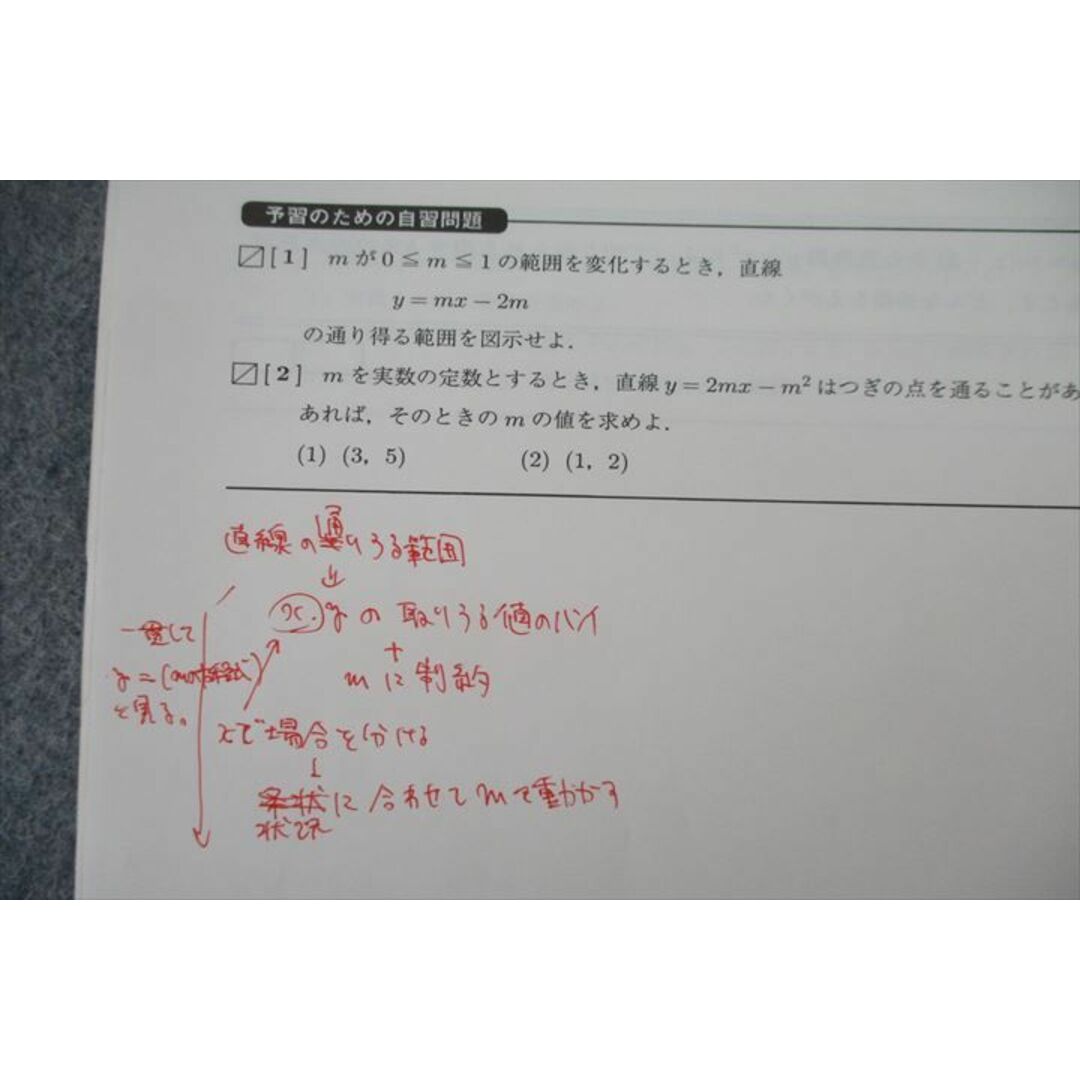 予習のための自習問題
[1] mが0≦m≦1の範囲を変化するとき，直線
y=mx－2m
の通り得る範囲を図示せよ．
[2] mを実数の定数とするとき，直線y=2mx－m²はつぎの点を通ることがあ
あれば，そのときのmの値を求めよ．
(1) (3, 5) (2) (1, 2)
直線の通りうる範囲
x.yの取りうる値のハンイ
+
mに制約
一貫して
y=(mの
と見る。
xで場合を分ける
状況に合わせてmを動かす